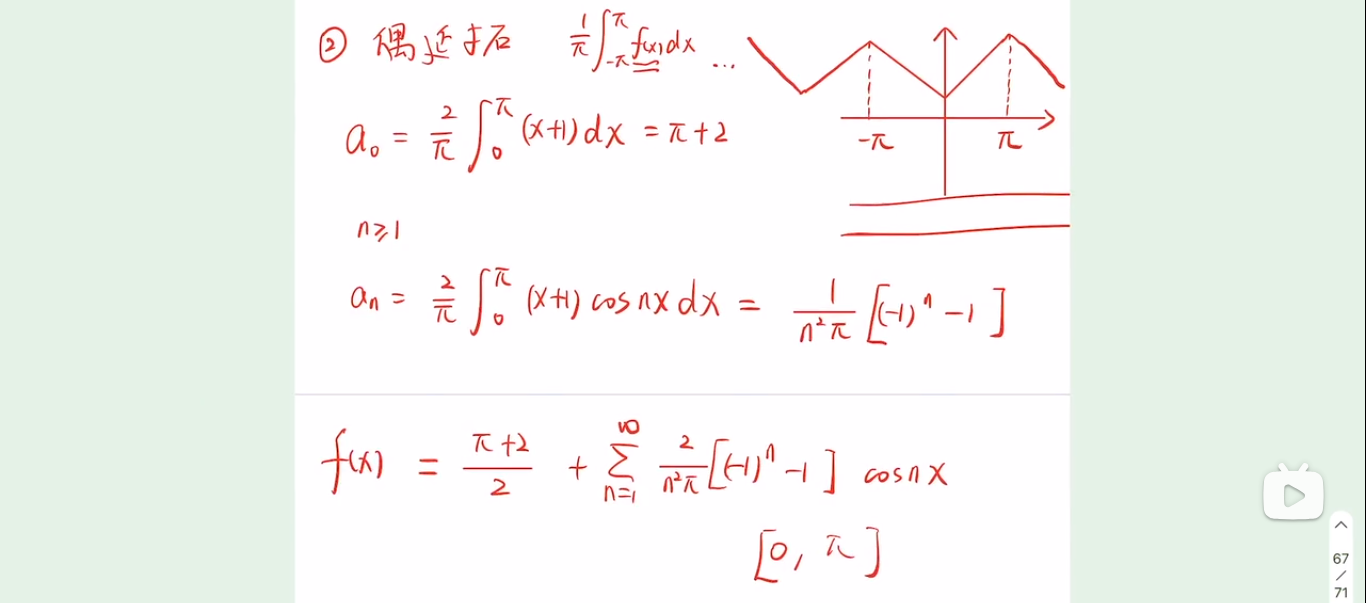 ② 偶延拓 $\frac{1}{\pi}\int_{-\pi}^{\pi} f(x)dx$ ...
$a_0 = \frac{2}{\pi}\int_0^{\pi}(x+1)dx = \pi+2$
-π π
n≥1
$a_n = \frac{2}{\pi}\int_0^{\pi}(x+1)\cos nx\,dx = \frac{1}{n^2\pi}[(-1)^n-1]$
$f(x) = \frac{\pi+2}{2} + \sum_{n=1}^{\infty}\frac{2}{n^2\pi}[(-1)^n-1]\cos nx$
[0, π]
67
/
71